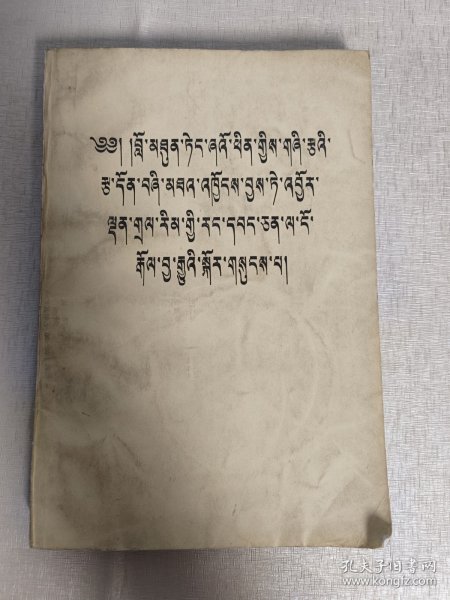 ༄༅། །བློ་མཐུན་ཏེང་ཞའོ་ཕིན་གྱིས་གཞི་རྩའི་
རྩ་དོན་བཞི་མཐའ་འཁྱོངས་བྱས་ཏེ་འབྱོར་
ལྡན་གྲལ་རིམ་གྱི་རང་དབང་ཅན་ལ་ངོ་
རྒོལ་བྱ་རྒྱུའི་སྐོར་གསུངས་པ།
孔夫子旧书网
www.kongfz.com